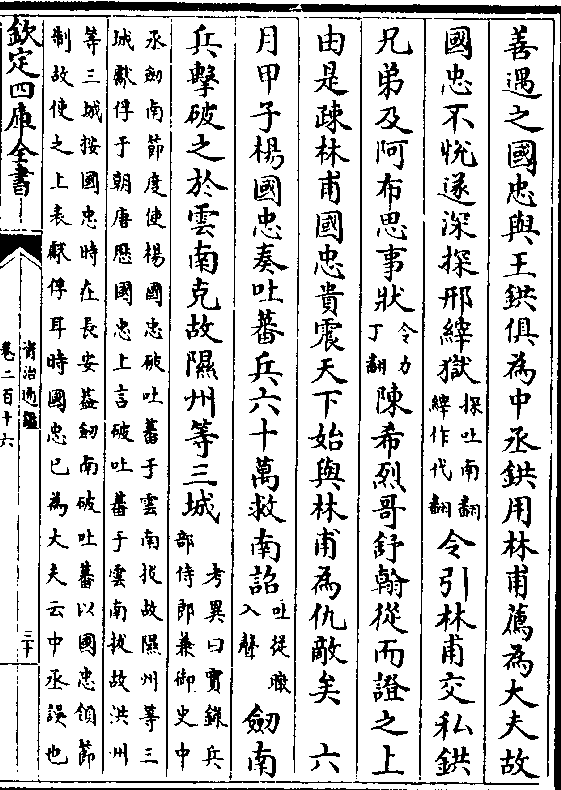 善遇之國忠與王鉷俱為中丞鉷用林甫薦為大夫故
國忠不悅遂深探邢縡獄探吐南翻縡作代翻令引林甫交私鉷
兄弟及阿布思事狀令力丁翻陳希烈哥舒翰從而證之上
由是疎林甫國忠貴震天下始與林甫為仇敵矣　六
月甲子楊國忠奏吐蕃兵六十萬救南詔吐從暾入聲劒南
兵擊破之於雲南克故隰州等三城考異曰實錄兵部侍郎兼御史中
丞劒南節度使楊國忠破吐蕃于雲南拔故隰州等三
城獻俘于朝唐厯國忠上言破吐蕃于雲南拔故洪州
等三城按國忠時在長安蓋劒南破吐蕃以國忠領節
制故使之上表獻俘耳時國忠已為大夫云中丞誤也
欽定四庫全書
資治通鑑
卷二百十六
三十